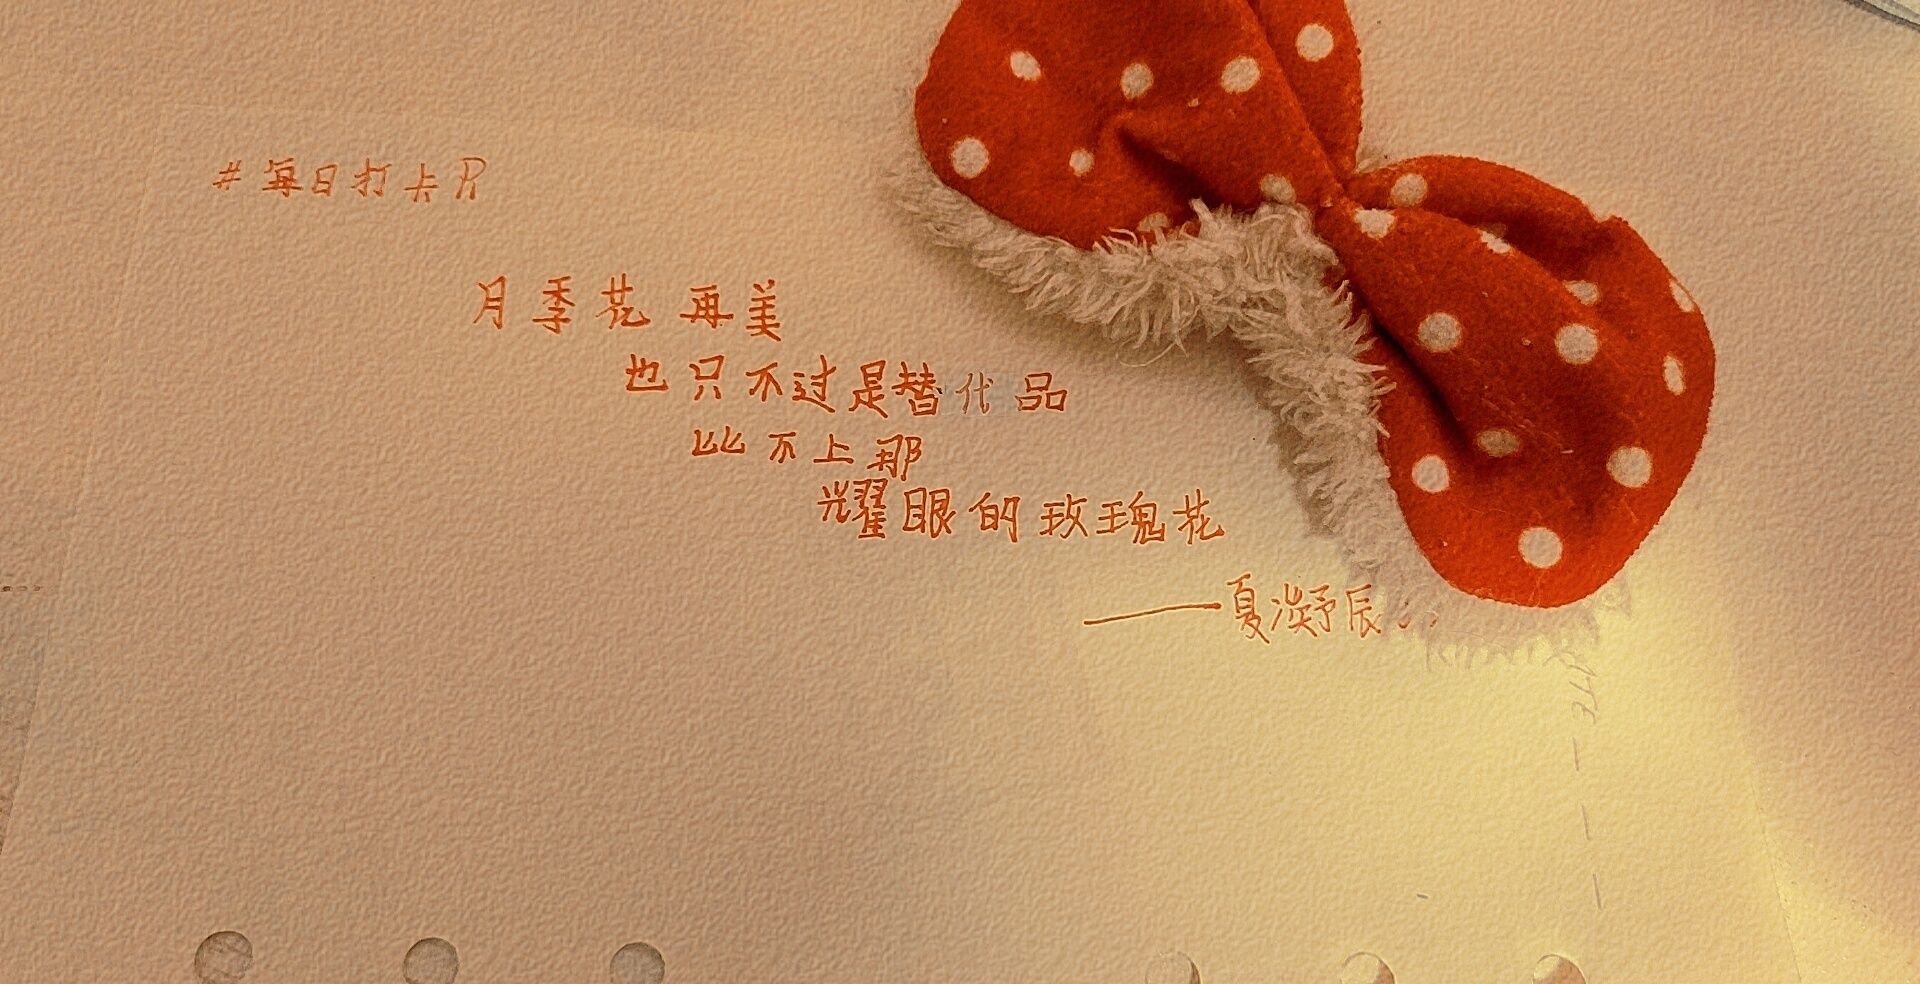 #每日打卡R
月季花再美
也只不过是替代品
比不上那
耀眼的玫瑰花
——夏凝辰